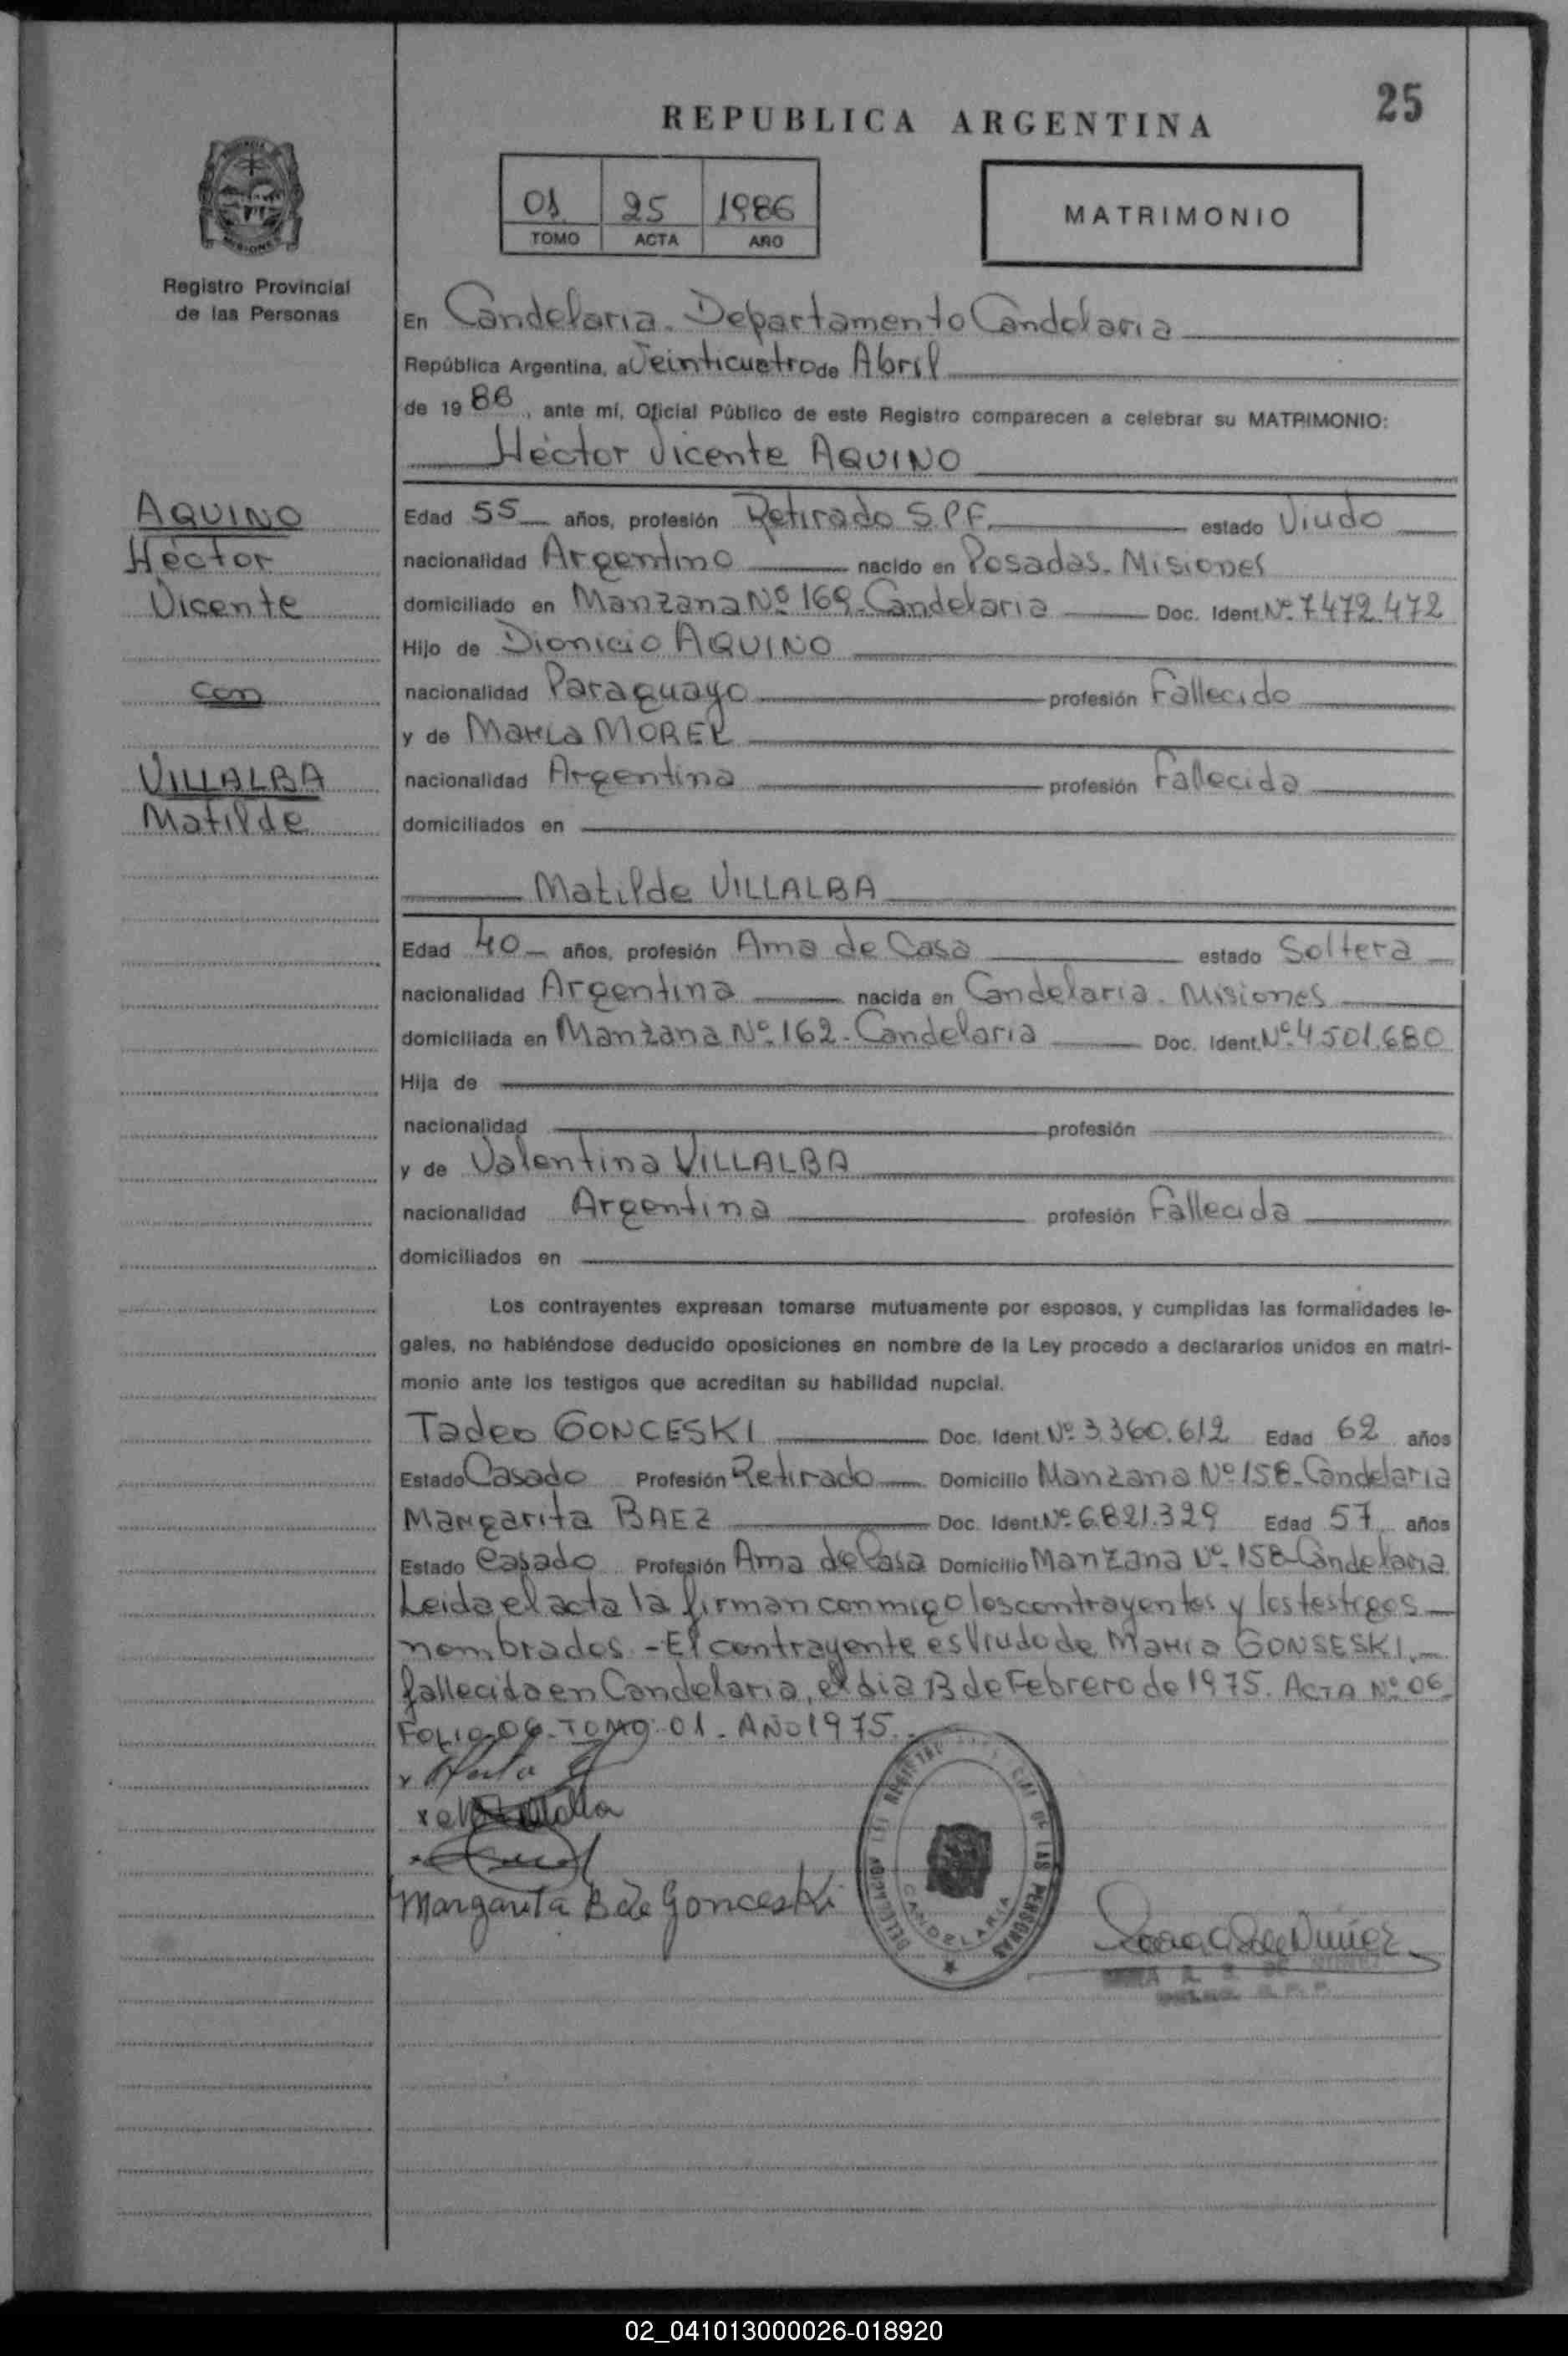 25
REPUBLICA ARGENTINA
01 25 1986
TOMO ACTA AÑO
MATRIMONIO
Registro Provincial
de las Personas
En Candelaria. Departamento Candelaria
República Argentina, a Veinticuatro de Abril
de 19 86, ante mí, Oficial Público de este Registro comparecen a celebrar su MATRIMONIO:
Héctor Vicente AQUINO
AQUINO
Héctor
Vicente
con
VILLALBA
Matilde
Edad 55 años, profesión Retirado S.P.F. estado Viudo
nacionalidad Argentino nacido en Posadas. Misiones
domiciliado en Manzana Nº 169. Candelaria Doc. Ident. Nº 7.472.472
Hijo de Dionicio AQUINO
nacionalidad Paraguayo profesión Fallecido
y de María MOREL
nacionalidad Argentina profesión Fallecida
domiciliados en
Matilde VILLALBA
Edad 40 años, profesión Ama de Casa estado Soltera
nacionalidad Argentina nacida en Candelaria. Misiones
domiciliada en Manzana Nº 162. Candelaria Doc. Ident. Nº 4.501.680
Hija de
nacionalidad profesión
y de Valentina VILLALBA
nacionalidad Argentina profesión Fallecida
domiciliados en
Los contrayentes expresan tomarse mutuamente por esposos, y cumplidas las formalidades le-
gales, no habiéndose deducido oposiciones en nombre de la Ley procedo a declararlos unidos en matri-
monio ante los testigos que acreditan su habilidad nupcial.
Tadeo GONCESKI Doc. Ident. Nº 3.360.612 Edad 62 años
Estado Casado Profesión Retirado Domicilio Manzana Nº 158. Candelaria
Margarita BAEZ Doc. Ident. Nº 6.821.329 Edad 57 años
Estado Casado Profesión Ama de Casa Domicilio Manzana Nº 158 Candelaria
Leida el acta la firman conmigo los contrayentes y los testigos
nombrados. - El contrayente es Viudo de María GONSESKI,
fallecida en Candelaria, el dia 13 de Febrero de 1975. ACTA Nº 06
FOLIO 06. TOMO: 01. AÑO 1975.
Margarita B de Gonceski
DELEGACION DEL REGISTRO DE LAS PERSONAS
CANDELARIA
de Nuñez
02_041013000026-018920